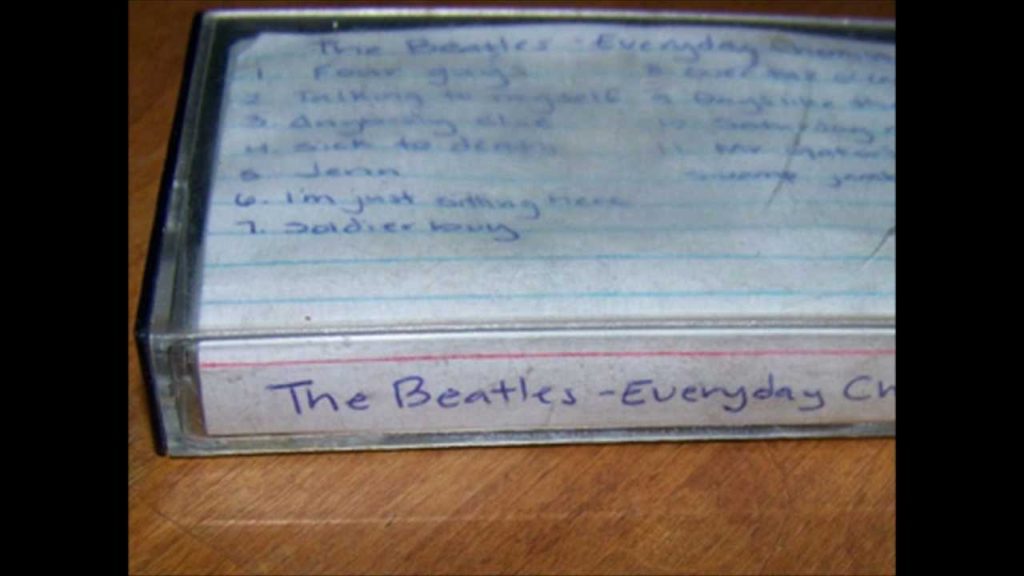 The Beatles - Everyday Chem
1. Four guys
2. Talking to myself
3. Anybody else
4. Sick to death
5. Jenn
6. I'm just sitting here
7. Soldier boy
8. Over the
9 Days like
10. Saturday
11. Mr
The Beatles - Everyday Ch